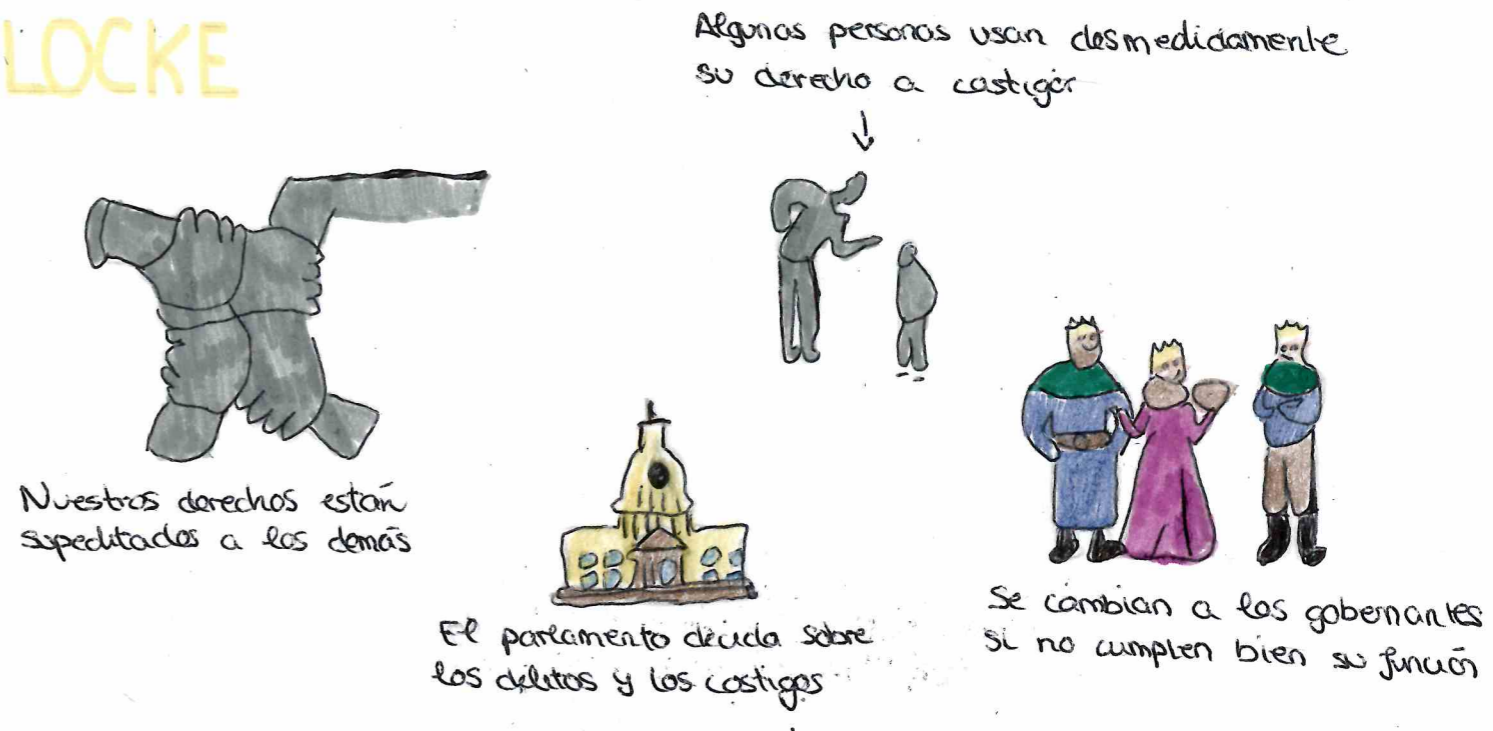 LOCKE
Algunas personas usan desmedidamente
su derecho a castigar
Nuestros derechos están
supeditados a los demás
El parlamento decida sobre
los delitos y los castigos
Se cambian a los gobernantes
si no cumplen bien su función